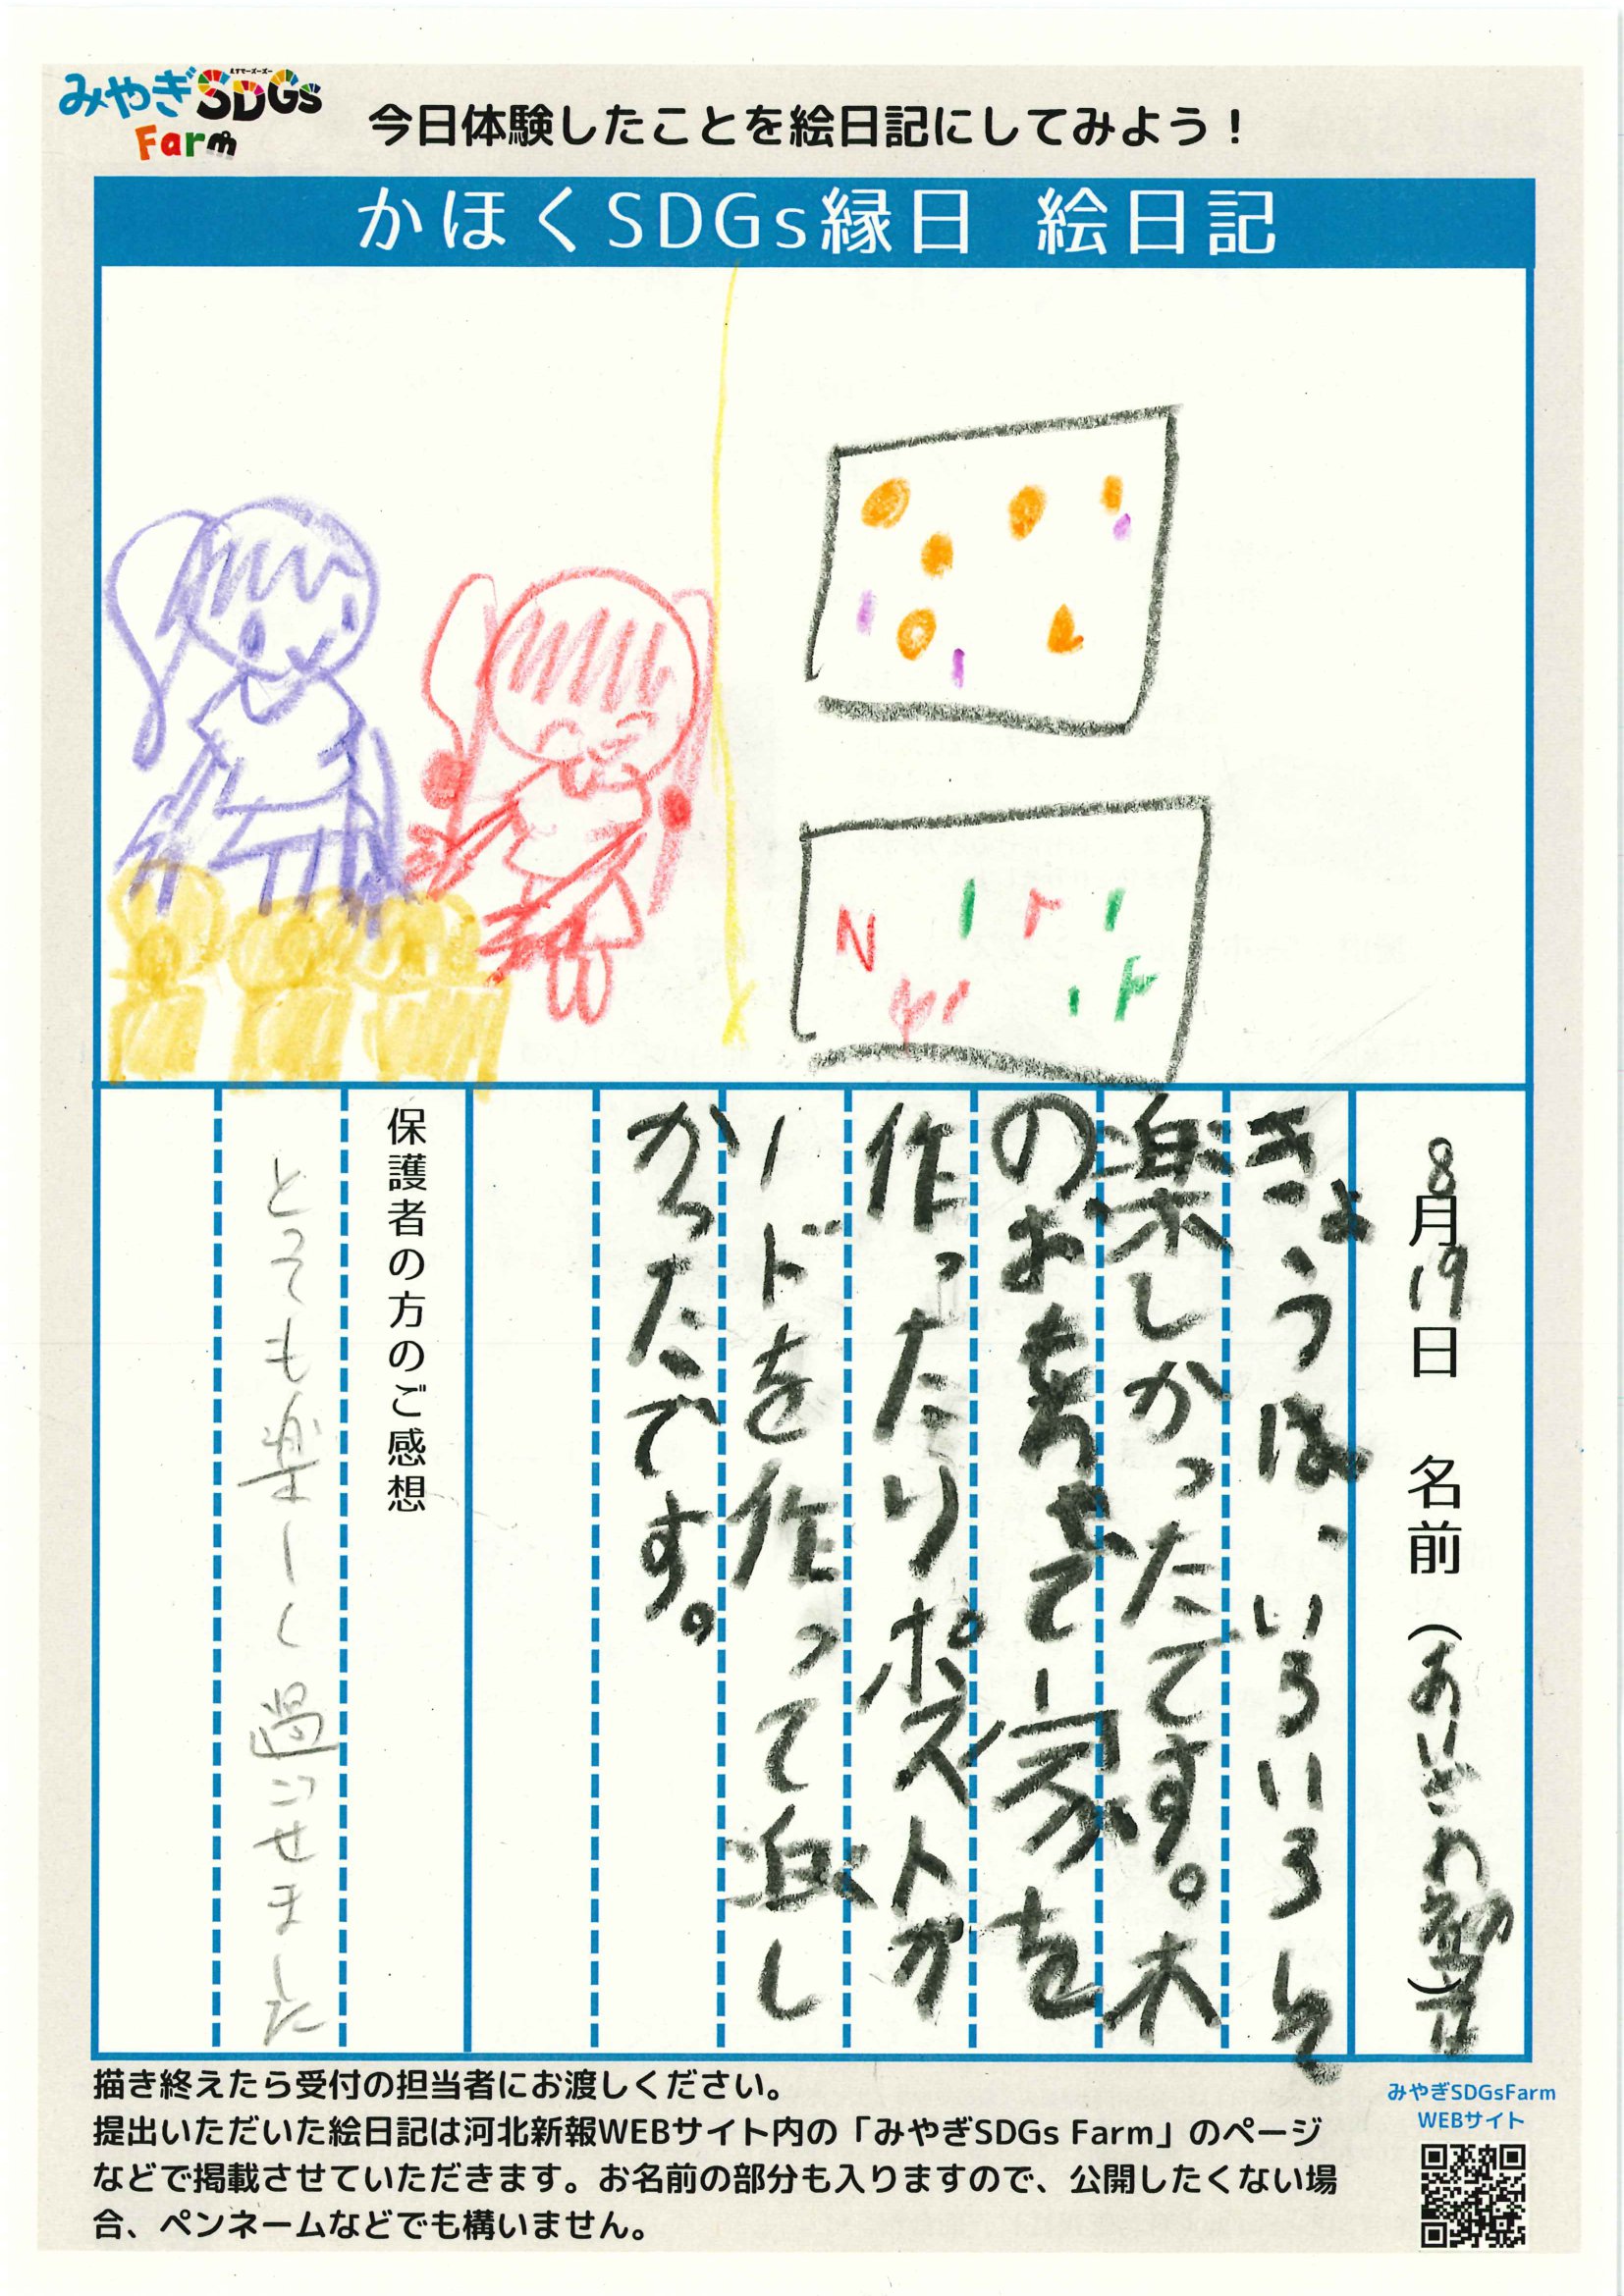 みやぎSDGs
エスディージーズ
Farm
今日体験したことを絵日記にしてみよう！
かほくSDGs縁日 絵日記
8月19日 名前（あいざわ）
きょうは、いろいろと
楽しかったです。木
のおもちゃで家を
作ったりポストカ
ードを作って楽し
かったです。
保護者の方のご感想
とても楽しく過ごせました
描き終えたら受付の担当者にお渡しください。
提出いただいた絵日記は河北新報WEBサイト内の「みやぎSDGs Farm」のページ
などで掲載させていただきます。お名前の部分も入りますので、公開したくない場
合、ペンネームなどでも構いません。
みやぎSDGsFarm
WEBサイト